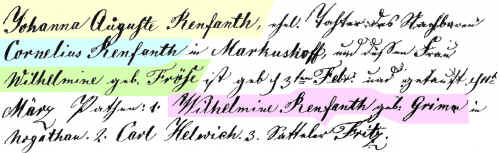 Johanna Auguste Renfanth, ehel. Tochter des Nachbaren
Cornelius Renfanth in Markushoff, und dessen Frau
Wilhelmine geb. Fröse ist geb. d 3ten Febr. und getauft
März Pathen: 1. Wilhelmine Renfanth geb. Grimm in
Nogathau. 2. Carl Helwich. 3. Sattler Fritz.